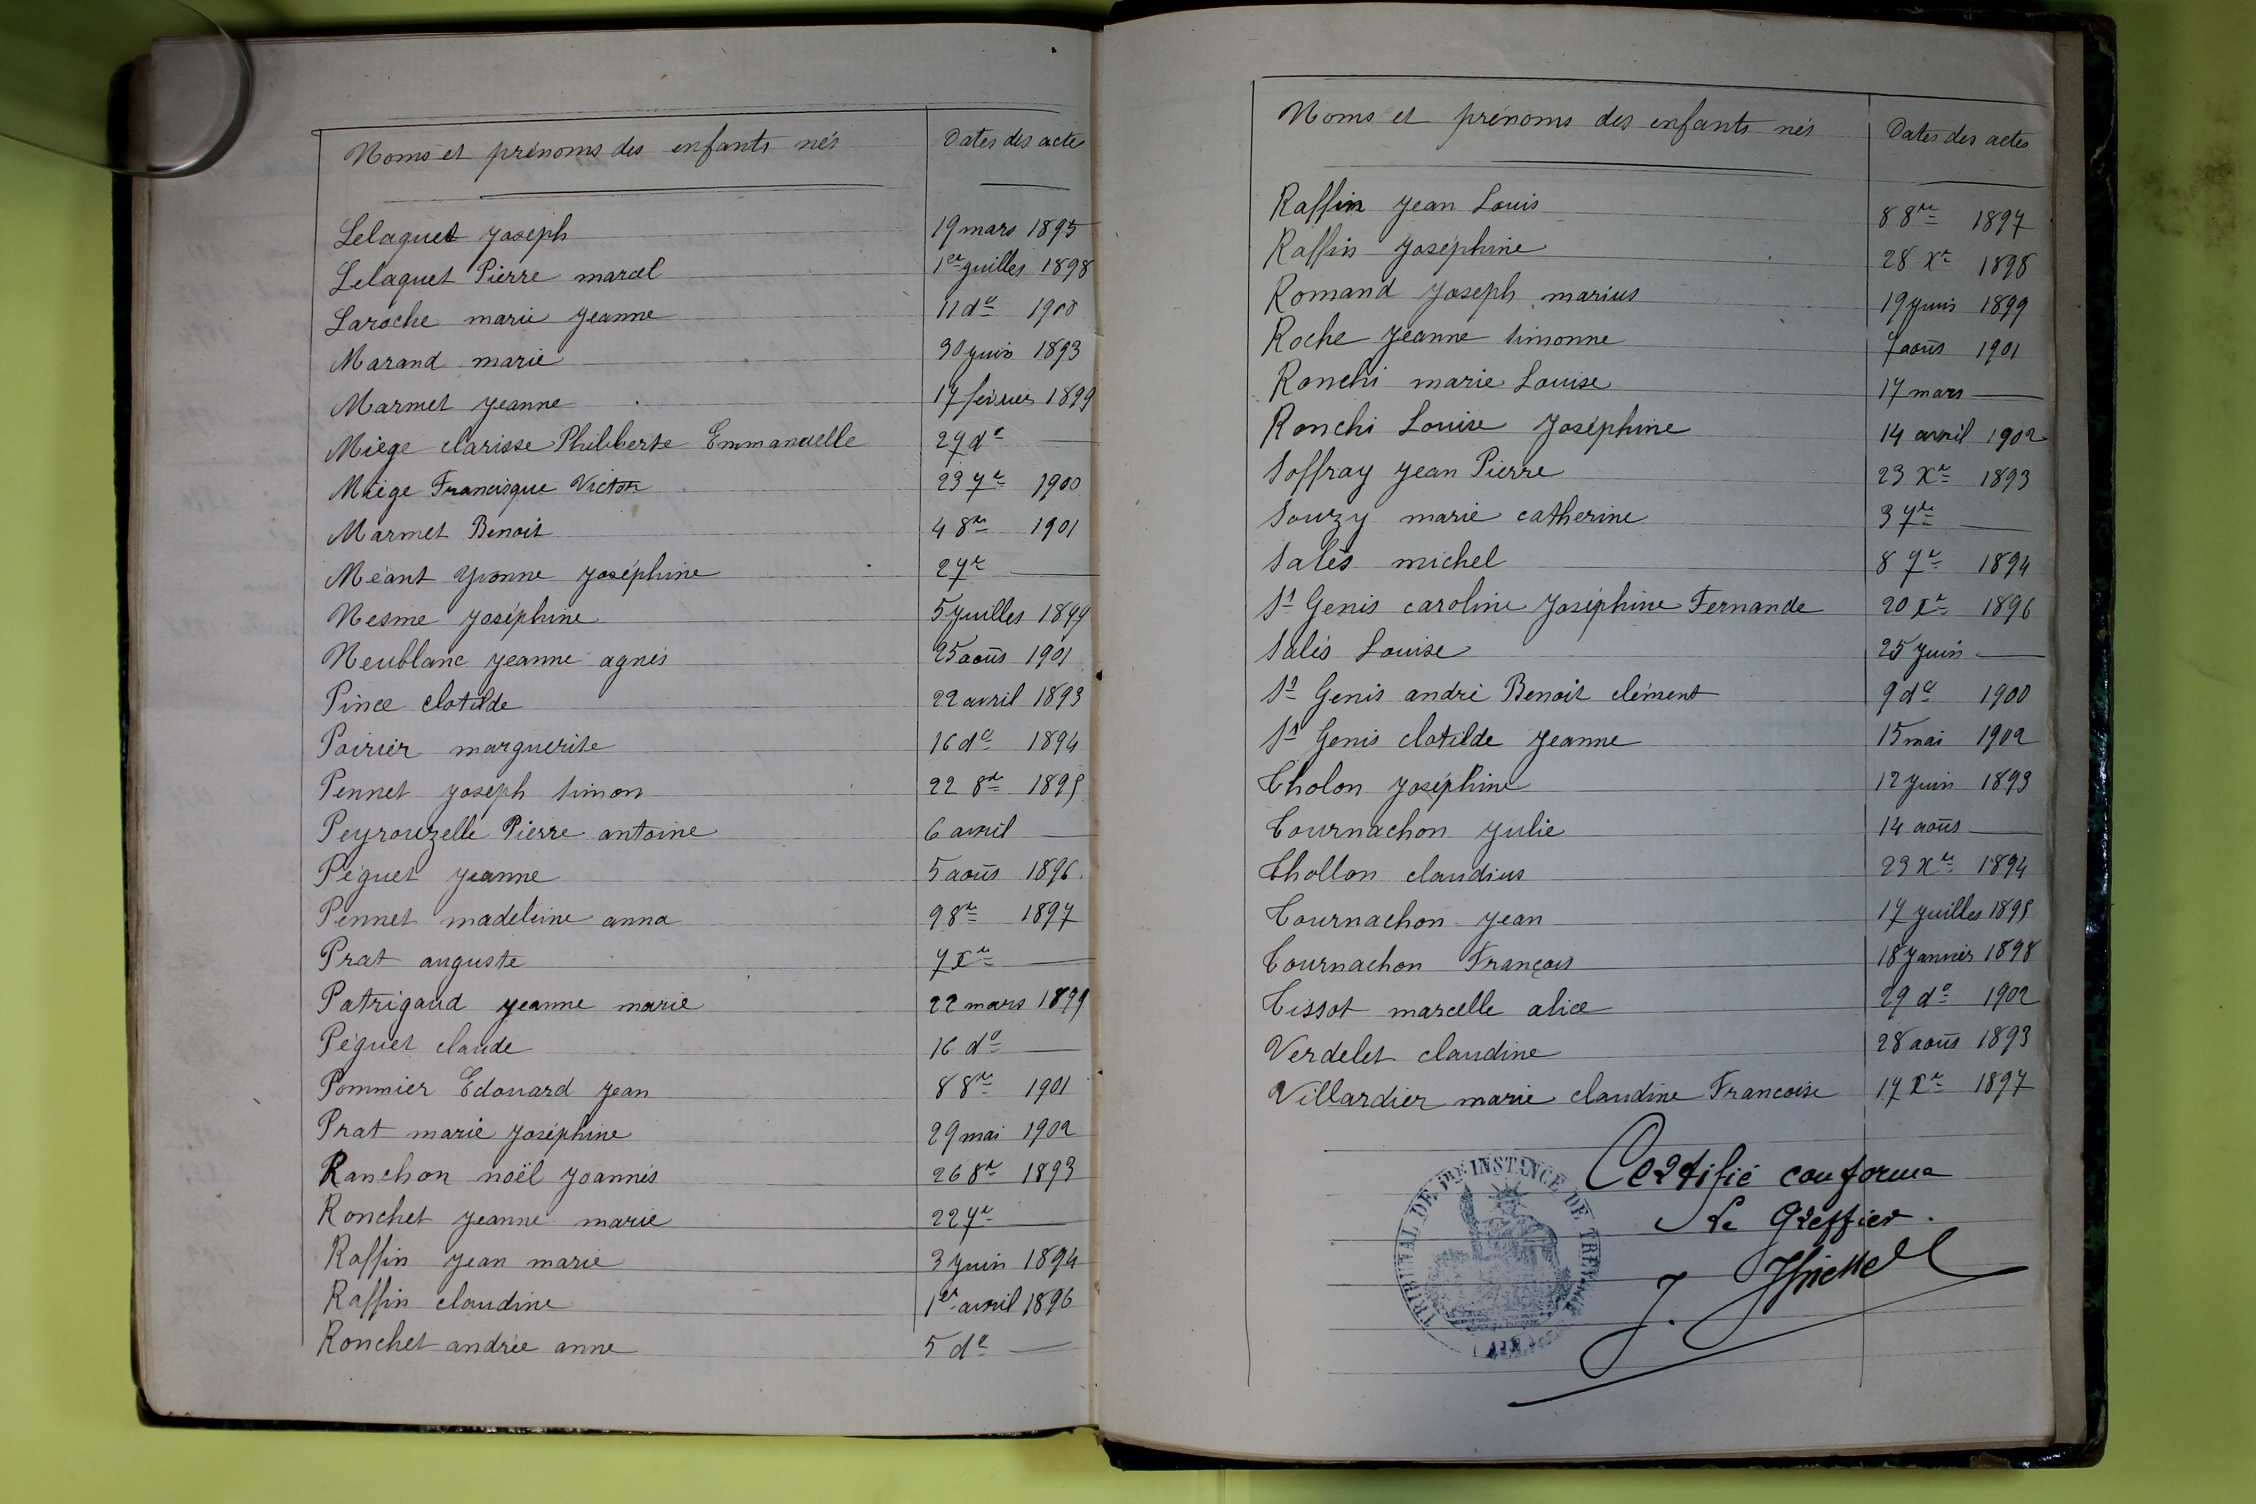 Noms et prénoms des enfants nés Dates des actes
Lelaguet Joseph 19 mars 1895
Lelaguet Pierre marcel 1er juillet 1898
Laroche marie Jeanne 11 do 1900
Marand marie 30 juin 1893
Marmet Jeanne 17 février 1899
Miège clarisse Philiberte Emmanuelle 27 do —
Miège Francisque Victor 23 7re 1900
Marmet Benoit 4 8re 1901
Méant Yvonne Joséphine 2 7re —
Nesme Joséphine 5 juillet 1899
Neublanc Jeanne agnès 25 août 1901
Pince clotilde 22 avril 1893
Poirier marguerite 16 do 1894
Pennet Joseph Simon 22 8re 1895
Peyrouzelle Pierre antoine 6 avril —
Péguet Jeanne 5 août 1896
Pennet madeleine anna 9 8re 1897
Prat auguste 7 Xre —
Patrigaud Jeanne marie 22 mars 1899
Péguet claude 16 do —
Pommier Edouard Jean 8 8re 1901
Prat marie Joséphine 29 mai 1902
Ranchon noël Joannès 26 8re 1893
Ronchet Jeanne marie 22 7re —
Raffin Jean marie 3 juin 1894
Raffin claudine 1er avril 1896
Ronchet andrée anne 5 do —
Noms et prénoms des enfants nés Dates des actes
Raffin Jean Louis 8 8re 1897
Raffin Joséphine 28 Xre 1898
Romand Joseph marius 19 juin 1899
Roche Jeanne Simonne 7 août 1901
Ronchi marie Louise 17 mars —
Ronchi Louise Joséphine 14 avril 1902
Soffray Jean Pierre 23 Xre 1893
Souzy marie catherine 3 7re —
Salès michel 8 7re 1894
St Genis caroline Joséphine Fernande 20 Xre 1896
Salès Louise 25 juin —
St Genis andré Benoit clément 9 do 1900
St Genis clotilde Jeanne 15 mai 1902
Tholon Joséphine 12 juin 1893
Tournachon Julie 14 août —
Thollon claudius 23 Xre 1894
Tournachon Jean 17 juillet 1895
Tournachon François 18 janvier 1898
Tissot marcelle alice 29 do 1902
Verdelet claudine 28 août 1893
Villardier marie claudine Françoise 17 Xre 1897
Certifié conforme
Le Greffier.
TRIBUNAL DE 1re INSTANCE DE TREVOUX
(AIN)